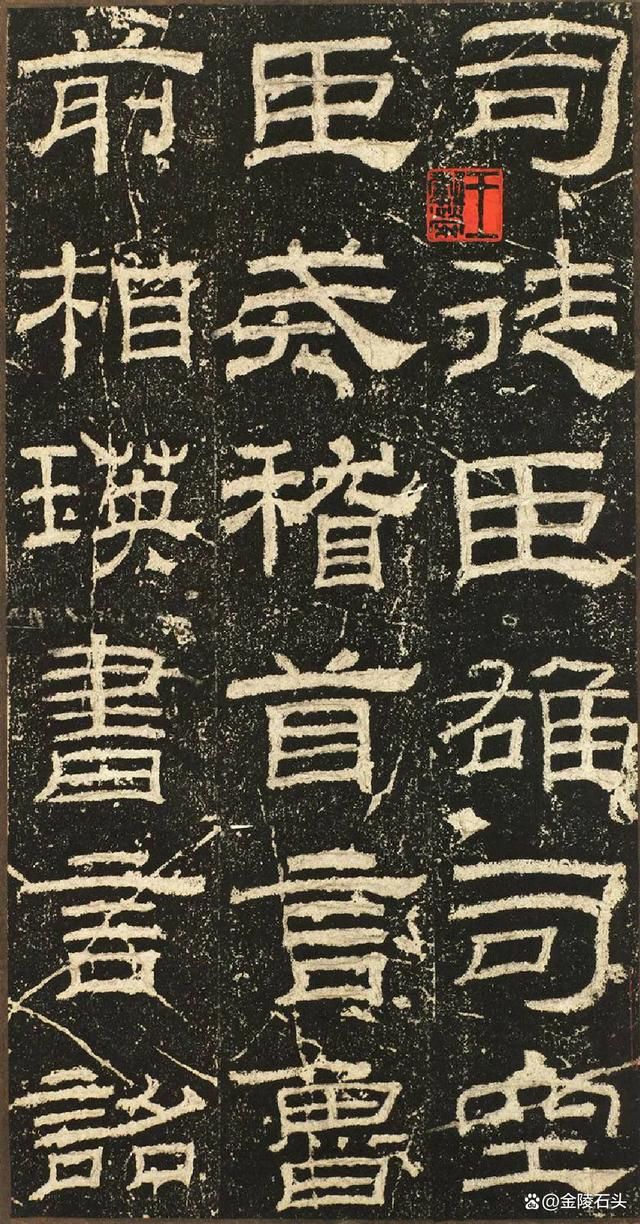 司徒臣雄司空
臣戒稽首言魯
前相瑛書言詔
@金陵石头